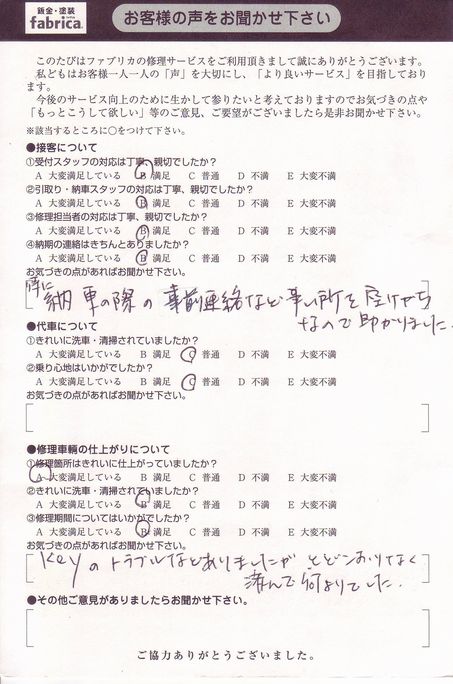 鈑金・塗装
fabrica.
お客様の声をお聞かせ下さい
このたびはファブリカの修理サービスをご利用頂きまして誠にありがとうございます。
私どもはお客様一人一人の「声」を大切にし、「より良いサービス」を目指しており
ます。
今後のサービス向上のために生かして参りたいと考えておりますのでお気づきの点や
「もっとこうして欲しい」等のご意見、ご要望がございましたら是非お聞かせ下さい。
※該当するところに○をつけて下さい。
●接客について
①受付スタッフの対応は丁寧、親切でしたか?
A 大変満足している B 満足 C 普通 D 不満 E 大変不満
②引取り・納車スタッフの対応は丁寧、親切でしたか?
A 大変満足している B 満足 C 普通 D 不満 E 大変不満
③修理担当者の対応は丁寧、親切でしたか?
A 大変満足している B 満足 C 普通 D 不満 E 大変不満
④納期の連絡はきちんとありましたか?
A 大変満足している B 満足 C 普通 D 不満 E 大変不満
お気づきの点があればお聞かせ下さい。
納車の際の事前連絡など
なので助かりました。
●代車について
①きれいに洗車・清掃されていましたか?
A 大変満足している B 満足 C 普通 D 不満 E 大変不満
②乗り心地はいかがでしたか?
A 大変満足している B 満足 C 普通 D 不満 E 大変不満
お気づきの点があればお聞かせ下さい。
●修理車輌の仕上がりについて
①修理箇所はきれいに仕上がっていましたか?
A 大変満足している B 満足 C 普通 D 不満 E 大変不満
②きれいに洗車・清掃されていましたか?
A 大変満足している B 満足 C 普通 D 不満 E 大変不満
③修理期間についてはいかがでしたか?
A 大変満足している B 満足 C 普通 D 不満 E 大変不満
お気づきの点があればお聞かせ下さい。
Keyのトラブルなどありましたが とどこおりなく
済んで何よりでした。
●その他ご意見がありましたらお聞かせ下さい。
ご協力ありがとうございました。